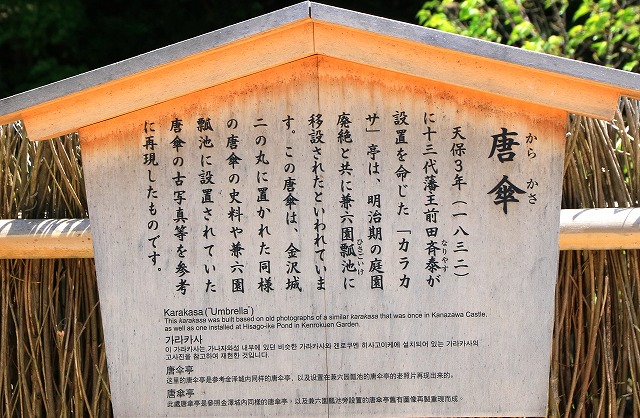 唐傘
から かさ
天保３年（一八三二）
に十三代藩主前田斉泰が
なりやす
設置を命じた「カラカ
サ」亭は、明治期の庭園
廃絶と共に兼六園瓢池に
ひさごいけ
移設されたといわれていま
す。この唐傘は、金沢城
二の丸に置かれた同様
の唐傘の史料や兼六園
瓢池に設置されていた
唐傘の古写真等を参考
に再現したものです。
Karakasa ("Umbrella")
This karakasa was built based on old photographs of a similar karakasa that was once in Kanazawa Castle,
as well as one installed at Hisago-ike Pond in Kenrokuen Garden.
가라카사
이 가라카사는 가나자와성 내부에 있던 비슷한 가라카사와 겐로쿠엔 히사고이케에 설치되어 있는 가라카사의
고사진을 참고하여 재현한 것입니다.
唐伞亭
这里的唐伞亭是参考金泽城内同样的唐伞亭、以及设置在兼六园瓢池的唐伞亭的老照片再现出来的。
唐傘亭
此處唐傘亭是參照金澤城內同樣的唐傘亭、以及兼六園瓢池旁設置的唐傘亭舊有圖像再製重現而成。